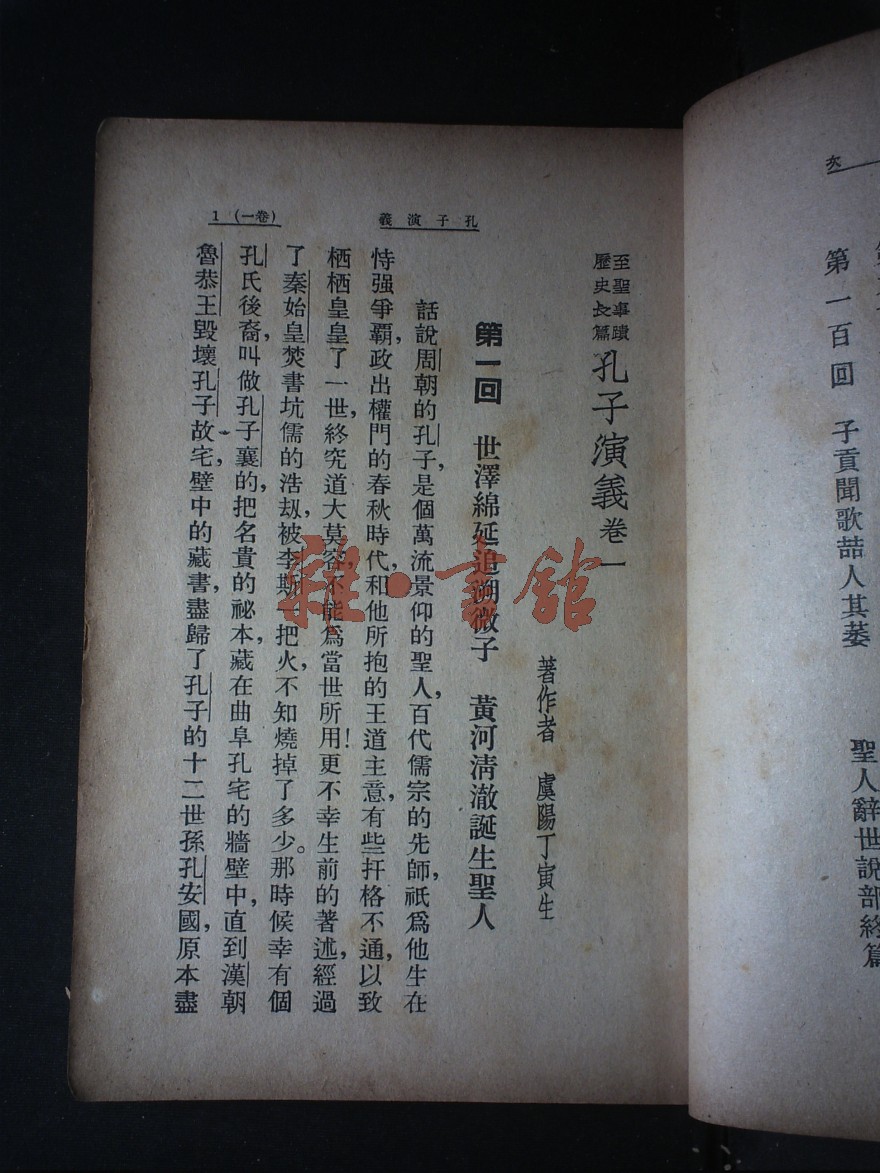 次
第一百回 子貢聞歌喆人其萎 聖人辭世說部終篇
孔子演義 (卷一) 1
至聖事蹟
歷史長篇
孔子演義卷一
著作者 虞陽丁寅生
第一回 世澤綿延追溯微子 黃河淸澈誕生聖人
話說周朝的孔子,是個萬流景仰的聖人,百代儒宗的先師,祇爲他生在
恃强爭霸,政出權門的春秋時代,和他所抱的王道主意,有些扞格不通,以致
栖栖皇皇了一世,終究道大莫容,不能爲當世所用!更不幸生前的著述,經過
了秦始皇焚書坑儒的浩刼,被李斯一把火,不知燒掉了多少。那時候幸有個
孔氏後裔,叫做孔子襄的,把名貴的祕本,藏在曲阜孔宅的牆壁中,直到漢朝
魯恭王毀壞孔子故宅,壁中的藏書,盡歸了孔子的十二世孫孔安國,原本盡
雜·書館